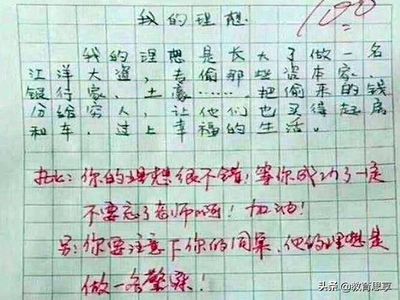 我的理想
100
我的理想是长大了做一名
江洋大盗，去偷那些资本家、
银行家、土豪……把偷来的钱
分给穷人，让他们也买得起房
和车，过上幸福的生活。
批：你的理想很不错！等你成功了一定
不要忘了老师啊！加油！
另：你要注意下你的同桌，他的理想是
做一名警察！
头条@教育思享